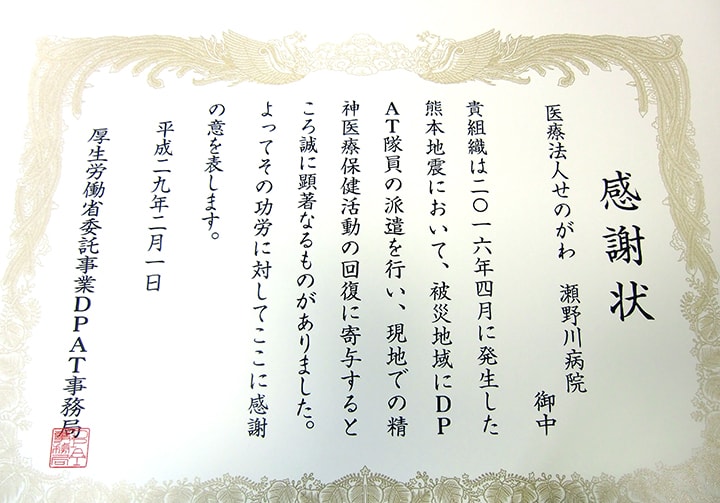 感謝状
医療法人せのがわ 瀬野川病院
御中
貴組織は二〇一六年四月に発生した
熊本地震において、被災地域にDP
AT隊員の派遣を行い、現地での精
神医療保健活動の回復に寄与すると
ころ誠に顕著なるものがありました。
よってその功労に対してここに感謝
の意を表します。
平成二九年二月一日
厚生労働省委託事業DPAT事務局